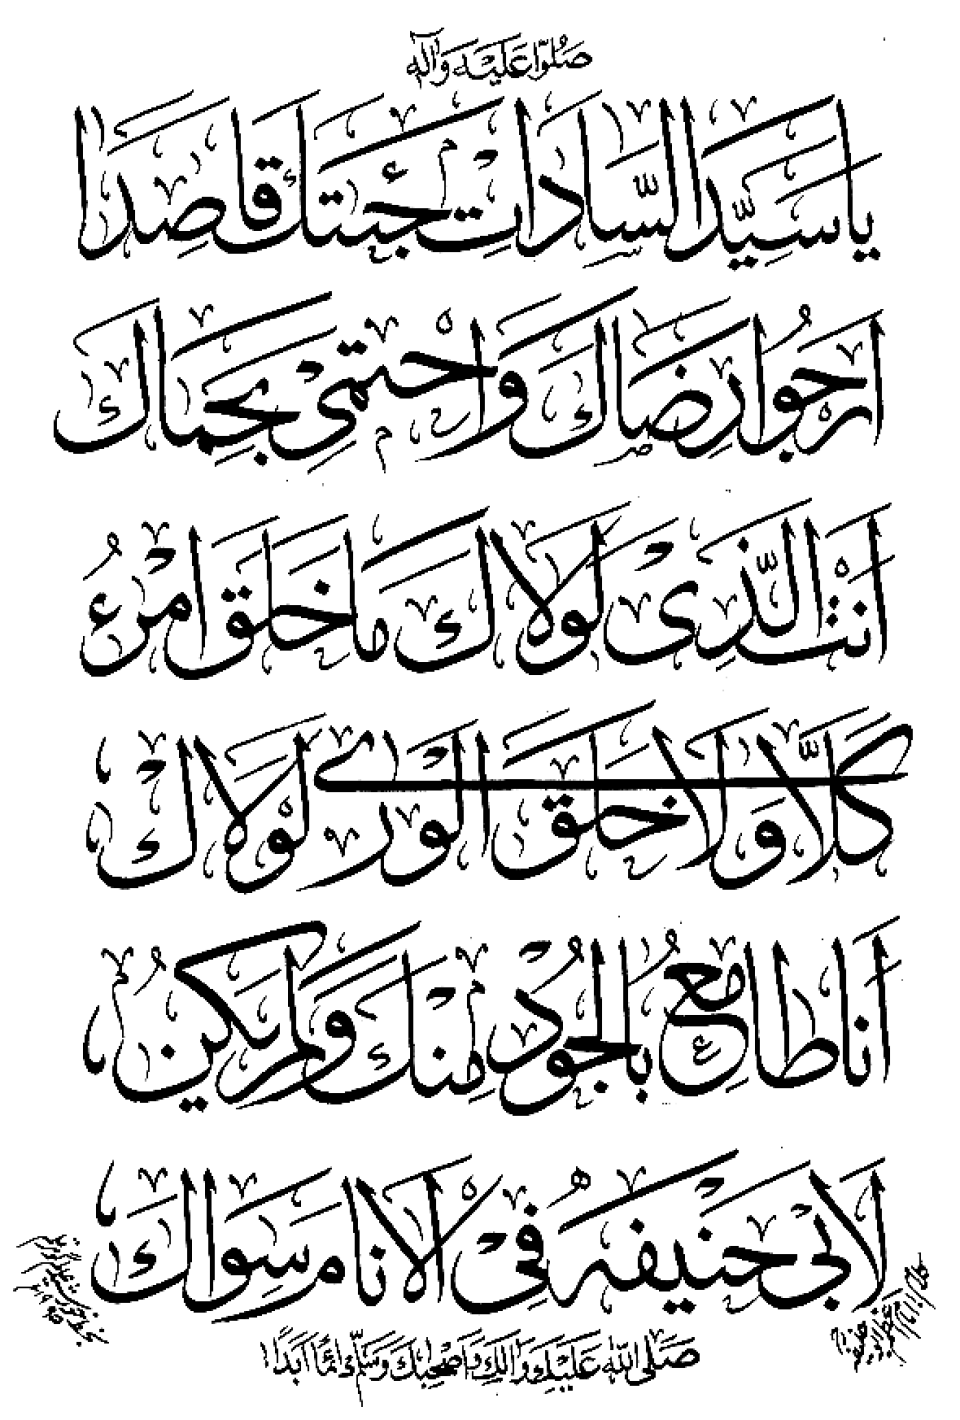 صَلُّوا عَلَيْهِ وَآلِهِ
يَا سَيِّدَ السَّادَاتِ جِئْتُكَ قَاصِدًا
اَرْجُوا رِضَاكَ وَاحْتَمِيْ بِحِمَاكَ
اَنْتَ الَّذِيْ لَوْلَاكَ مَا خُلِقَ امْرُءٌ
كَلَّا وَلَا خُلِقَ الْوَرٰى لَوْلَاكَ
اَنَا طَامِعٌ بِالْجُوْدِ مِنْكَ وَلَمْ يَكُنْ
لِاَبِيْ حَنِيْفَةَ فِي الْاَنَامِ سِوَاكَ
صَلَّى اللهُ عَلَيْكَ وَآلِكَ وَاَصْحَابِكَ وَسَلَّمَ دَائِمًا اَبَدًا